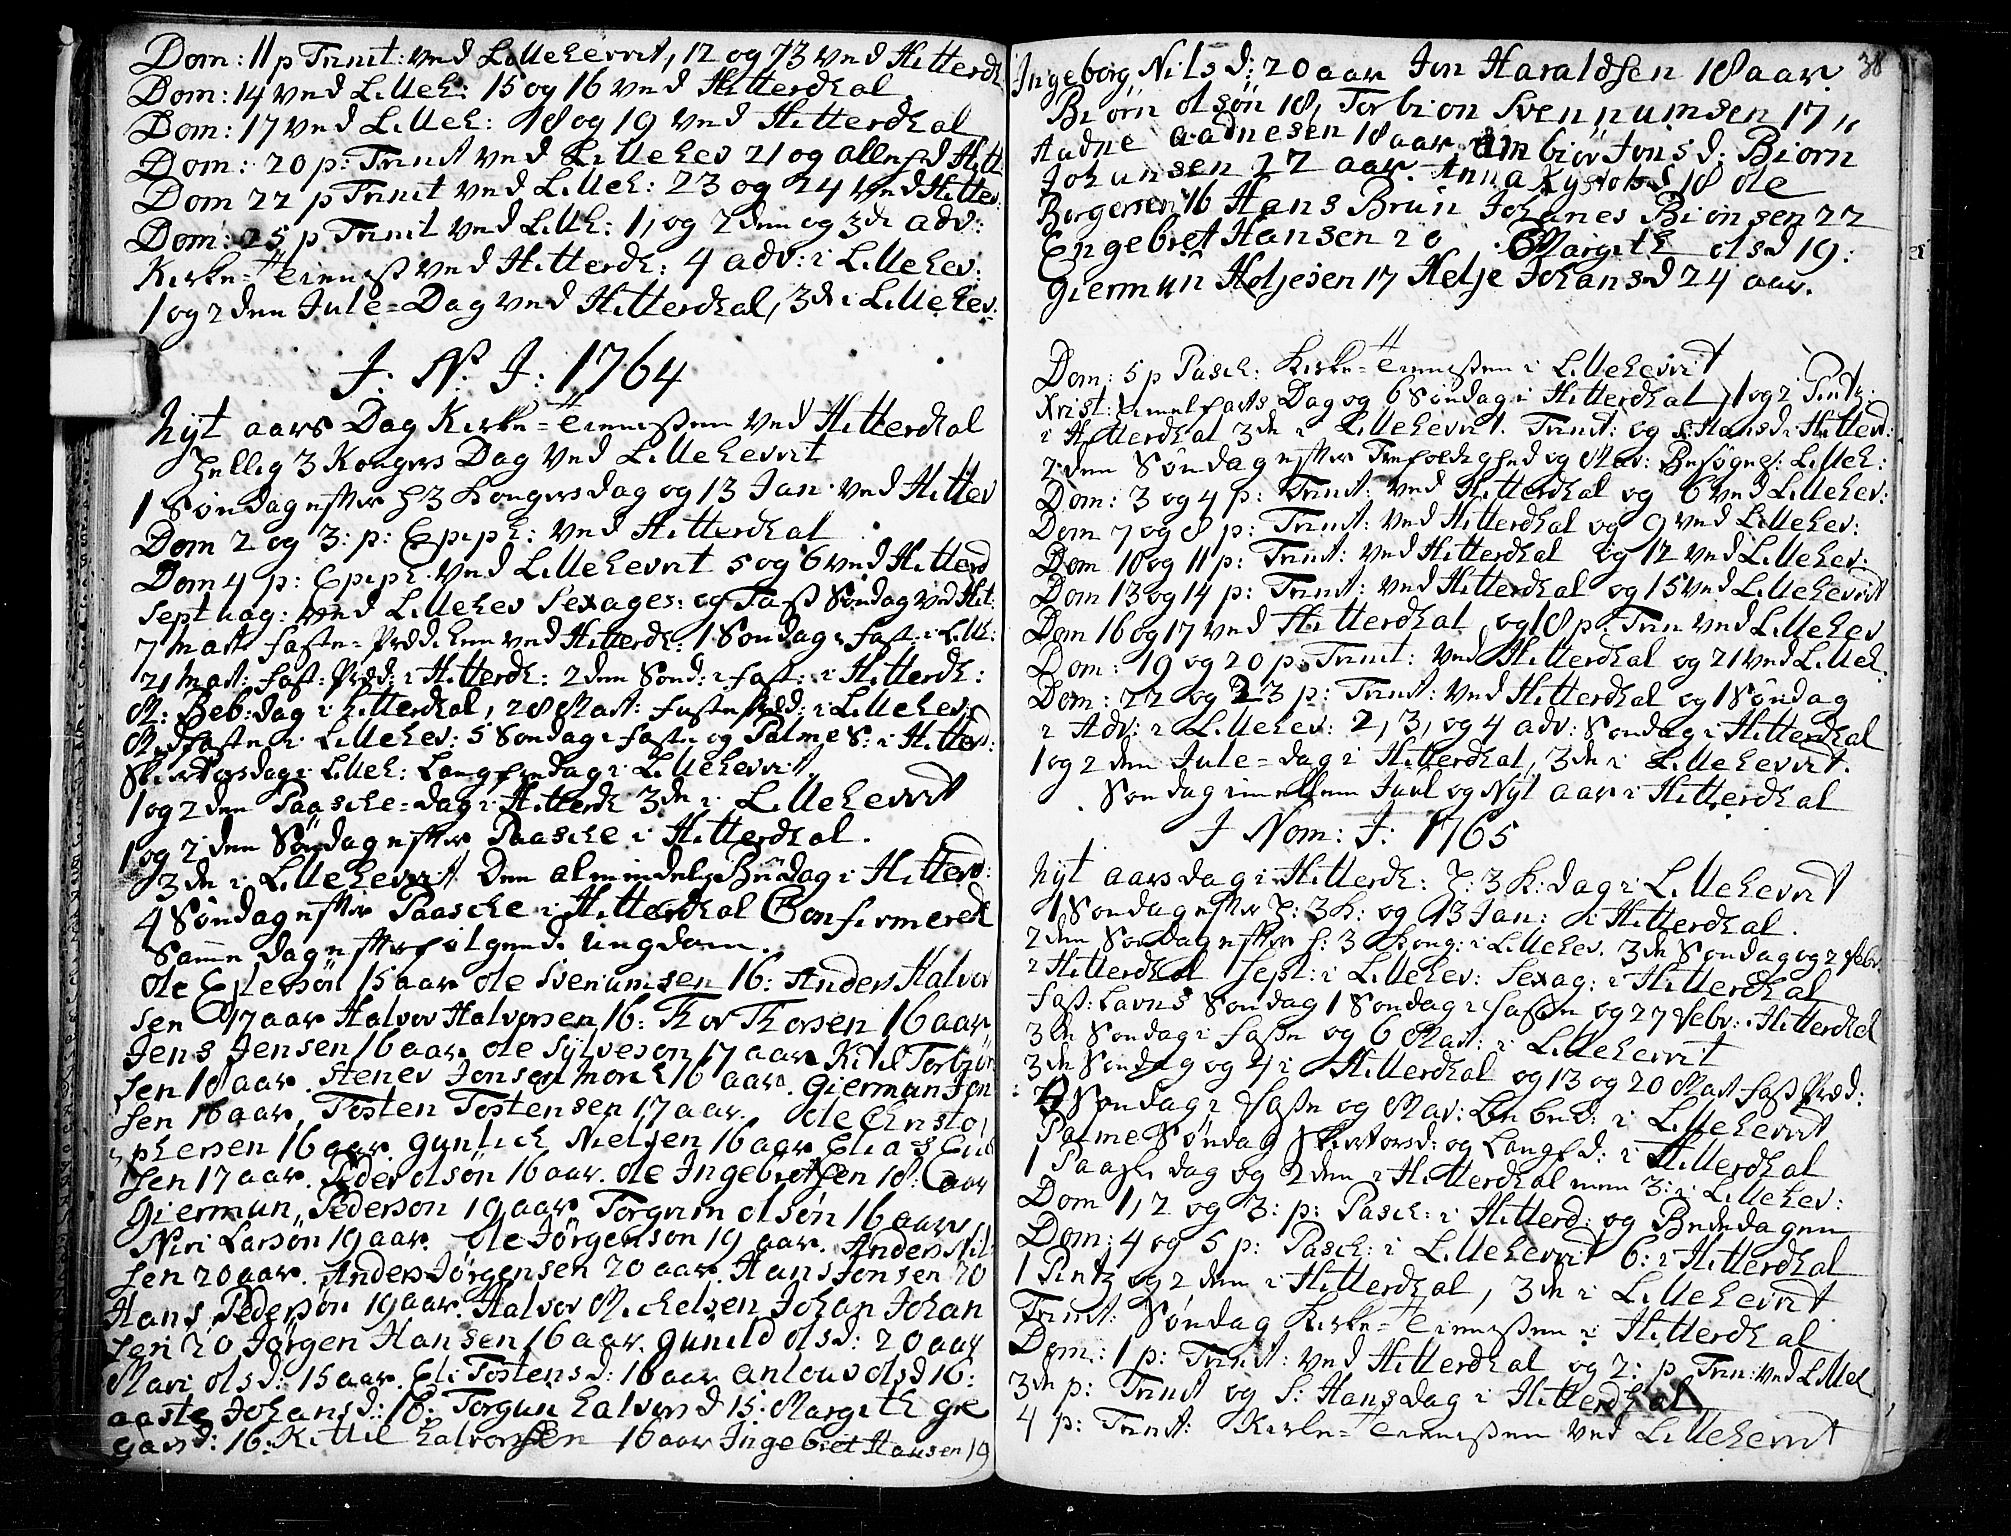 Dom: 11 p Trinit: ved Lilleherrit, 12 og 13 ved Hitterdh
Dom: 14 ved Lilleh: 15 og 16 ved Hitterdhal
Dom: 17 ved Lilleh: 18 og 19 ved Hitterdhal
Dom: 20 p: Trinit ved Lillehev 21 og allehed Hitt
Dom 22 p Trinit ved Lilleh: 23 og 24 ved Hitter:
Dom: 25 p. Trinit ved Lilleh: 1, og 2den og 3de adv:
Kirke=Tienneste ved Hitterdh: 4 adv: i Lillehev:
1 og 2den Jule=Dag ved Hitterdhal, 3de i Lillehev:
J. N. J: 1764
Nyt aars Dag Kirke=Tiennesten ved Hitterdhal
Hellig 3 Kongers Dag ved Lilleherrit
1 Søndag efter H 3 Kongersdag og 13 Jan: ved Hitter
Dom 2 og 3: p: Epiph: ved Hitterdhal
Dom 4 p: Epiph: ved Lilleherrit 5 og 6 ved Hitterd
Septuag: ved Lillehev Sexages: og Fast Søndag ved Hit:
7 Mart faste=Prædiken ved Hitterdh: 1 Søndag i Fast: i Lilleh:
21 Mart: fast: Præd: i Hitterdh: 2den Sønd: i fast: i Hitterdh:
M: Beb: dag i Hitterdhal, 28 Mart: faste præd: i Lillehev:
Midfaste i Lillehev: 5 Søndag i faste og Palme S: i Hitterd:
Skiertorsdag i Lilleh: Langfredag i Lilleherrit.
1 og 2den Paasche=dag i Hitterdh 3de i Lilleherrit
1 og 2den Søndag efter Paasche i Hitterdhal.
3de i Lilleherrit Den almindelig Bededag i Hitterd:
4 Søndag efter Paasche i Hitterdhal Confirmeret
Samme dag efterfølgende ungdom.
Ole Epersøn 15 aar Ole Svenumsen 16: Anders Halvor
sen 17 aar Halvor Halvorsen 16: Thor Thorsen 16 aar
Jens Jensen 16 aar Ole Sylveson 17 aar Kitel Torbiør
sen 18 aar. Stener Jonsen morch 16 aar. Gierman Jon
sen 16 aar, Tosten Tostensen 17 aar. Ole Christo
phersen 16 aar. Gunlich Nielsen 16 aar Elias
sen 17 aar. Peder olsøn 16 aar. Ole Ingebretsen 18: aar
Giermun Pederson 19 aar Torgrim olsøn 16 aar
Niri Larsøn 19 aar. Ole Jørgenson 19 aar. Anders Nil
sen 20 aar. Anders Jørgensen 20 aar. Hans Jonsen 20
Hans Pedersøn 19 aar. Halvor Michelsen Johan Johan
sen 20 Jørgen Hansen 16 aar. Gunild olsd: 20 aar
Mari olsd: 15 aar. Eli Tostensd: 16 aar olsd 16:
aaste Johansd: 16: Torgun halvors d 15: Margith gre
gars d: 16: Kittil halvorsen 16 aar Ingebret Hansen 19
38
Ingeborg Nils d: 20 aar Jon Haraldsen 18 aar.
Biørn olsøn 18, Torbion Svennumsen 17 "
Aadne aadnesen 18 aar. Anbiør Jons d: Biorn
Johansen 22 aar. Anna d 18 Ole
Borgersen 16 Hans Brun Johanes Bionsen 22
Engebret Hansen 20 Margith olsd 19:
Giermun Heljesen 17 Helje Johansd 24 aar.
Dom: 5 p Pasch: Kirke=Tiennesten i Lilleherrit
Krist: himelfarts Dag og 6 Søndag i Hitterdhal, 1 og 2 Pintz:
i Hitterdhal 3de i Lilleherrit. Trinit: og S: Hansd: i Hitterd:
2den Søndag efter Trefoldighed og Mar: Besøgels: Lilleh:
Dom: 3 og 4 p: Trinit: ved Hitterdhal og 6 ved Lillehev:
Dom 7 og 8 p: Trinit: ved Hitterdhal og 9 ved Lillehev:
Dom 10 og 11 p: Trinit: ved Hitterdhal og 12 ved Lillehev:
Dom 13 og 14 p: Trinit: ved Hitterdhal og 15 ved Lilleherrit
Dom 16 og 17 ved Hitterdhal og 18 p Trin ved Lillehev
Dom: 19 og 20 p: Trinit: ved Hitterdhal og 21 ved Lilleh.
Dom: 22 og 23 p: Trinit: ved Hitterdhal og 1 Søndag
i Adv: i Lillehev: 2, 3, og 4 adv: Søndag i Hitterdhal
1 og 2den Jule=dag i Hitterdhal, 3de i Lilleherrit.
Søndag imellem Juul og Nyt aar i Hitterdhal
J Nom: J: 1765
Nyt aarsdag i Hitterdh: H: 3 K: dag i Lilleherrit
1 Søndag efter H: 3 K: og 13 Jan: i Hitterdhal.
2den Søndag efter H: 3 Kong: i Lillehev. 3de Søndag og 2 Febr
i Hitterdhal Sept: i Lillehev: Sexag: i Hitterdhal
Fast: Lavns Søndag 1 Søndag i fasten og 27 Febr: i Hitterdhal
3de Søndag i fasten og 6 Mart: i Lilleherrit
3de Søndag og 4 i Hitterdhal og 13 og 20 Mart fast Præd:
5 Søndag i fasten og Mar: Beb: i Lilleherrit
Palme Søndag Skiertorsd: og Langfd: i Hitterdhal
1 Paaske dag og 2den i Hitterdhal men 3: i Lillehev:
Dom 1, 2 og 3: p: Pasch: i Hitterd: og Bededagen
Dom: 4 og 5 p: Pasch: i Lilleherrit 6: i Hitterdhal
1 Pintz og 2den i Hitterdhal, 3de i Lilleherrit
Trinit: Søndag Kirke=Tiennesten i Hitterdhal
Dom: 1 p: Trinit: ved Hitterdhal og 2: p Trin: ved Lilleh
3de p: Trinit og S: Hansdag i Hitterdhal
4 p: Trinit: Kirke=Tiennesten ved Lilleherrit